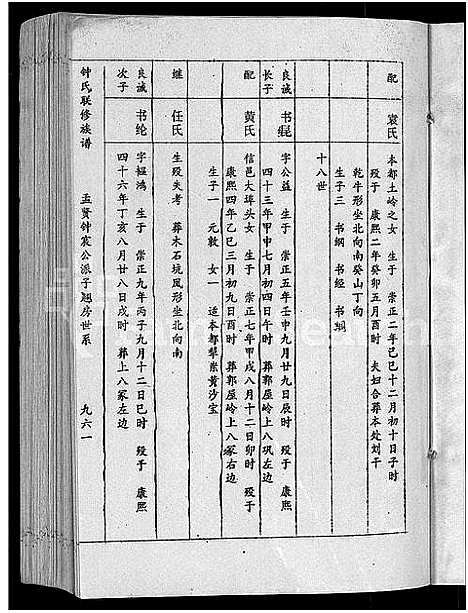 配 袁氏 本都土岭之女 生于 崇正二年己巳十二月初十日子时
殁于 康熙二年癸卯五月酉时 夫妇合葬本处刘干
乾牛形坐北向南癸山丁向
生子三 书纲 书经
十八世
良诚长子 字公益 生于 崇正五年壬申九月廿九日辰时 殁于 康熙
四十三年甲申七月初四日午时 葬郭屋岭上八巩左边
配 黄氏 信邑大埠头女 生于 崇正七年甲戌八月十二日卯时 殁于
康熙四年乙巳三月初九日酉时 葬郭屋岭上八冢右边
生子一 元敦 女一 适本都犁黄沙宝
继 任氏 生殁失考 葬木石坑凤形坐北向南
良诚次子 书纶 字韫鸿 生于 崇正九年丙子九月十二日巳时 殁于 康熙
四十六年丁亥八月廿八日戌时 葬上八冢左边
钟氏联修族谱 孟贤钟宸公派子翘房世系 九六一